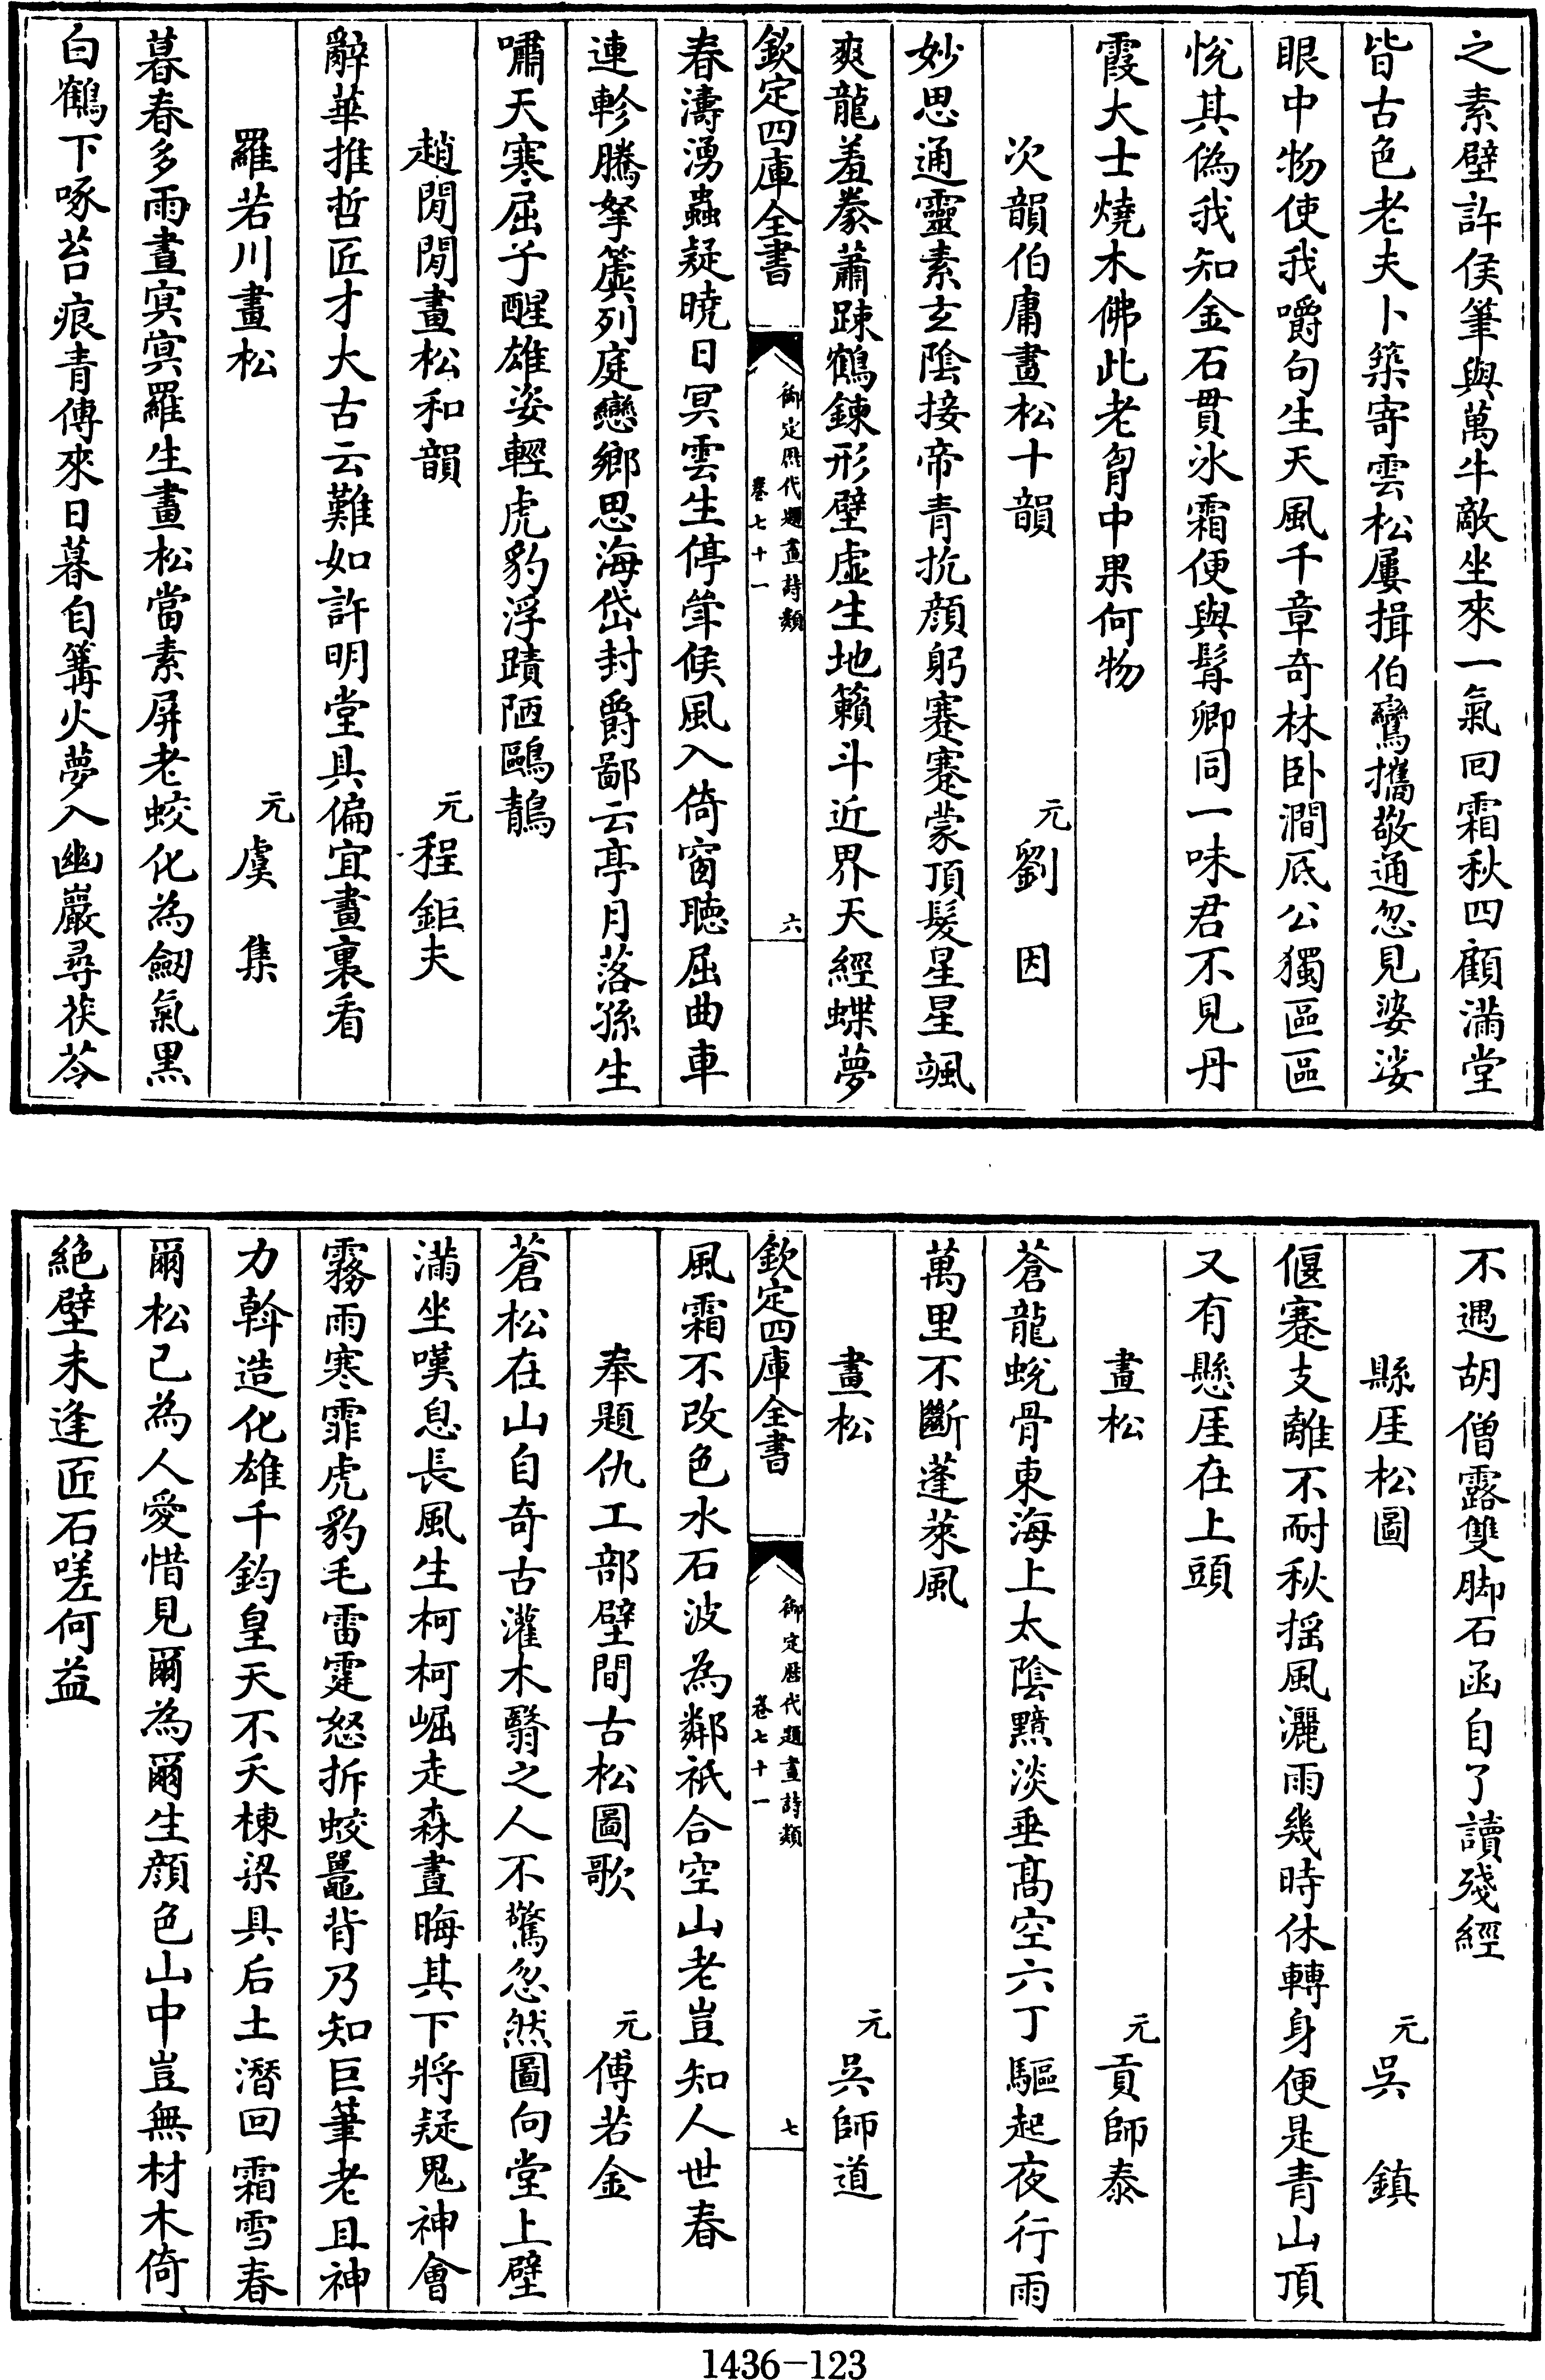 之素壁許侯筆與萬牛敵坐來一氣回霜秋四顧滿堂
皆古色老夫卜築寄雲松屢揖伯鸞攜敬通忽見婆娑
眼中物使我嚼句生天風千章奇林卧澗底公獨區區
悅其偽我知金石貫氷霜便與髯卿同一味君不見丹
霞大士燒木佛此老胷中果何物
次韻伯庸畫松十韻
元劉因
妙思通靈素玄陰接帝青抗顏躬蹇蹇蒙頂髮星星颯
爽龍羞豢蕭踈鶴鍊形壁虛生地籟斗近界天經蝶夢
欽定四庫全書
御定歴代題畫詩類
卷七十一
六
春濤湧蟲疑曉日冥雲生停笮候風入倚窗聽屈曲車
連軫騰拏簴列庭戀鄉思海岱封爵鄙云亭月落猻生
嘯天寒屈子醒雄姿輕虎豹浮蹟陋鷗鶄
趙閒閒畫松和韻
元程鉅夫
辭華推哲匠才大古云難如許明堂具偏宜畫裏看
羅若川畫松
元虞集
暮春多雨晝冥冥羅生畫松當素屏老蛟化為劒氣黑
白鶴下啄苔痕青傅來日暮自篝火夢入幽巖尋茯苓
不遇胡僧露雙脚石函自了讀殘經
縣厓松圖
元吳鎮
偃蹇支離不耐秋揺風灑雨幾時休轉身便是青山頂
又有懸厓在上頭
畫松
元貢師泰
蒼龍蛻骨東海上太陰黯淡垂髙空六丁驅起夜行雨
萬里不斷蓬萊風
畫松
元吳師道
欽定四庫全書
御定歴代題畫詩類
卷七十一
七
風霜不改色水石波為鄰祇合空山老豈知人世春
奉題仇工部壁間古松圖歌
元傅若金
蒼松在山自奇古灌木翳之人不驚忽然圖向堂上壁
滿坐嘆息長風生柯柯崛走森晝晦其下將疑鬼神會
霧雨寒霏虎豹毛雷霆怒拆蛟鼉背乃知巨筆老且神
力斡造化雄千鈞皇天不夭棟梁具后土潛回霜雪春
爾松已為人愛惜見爾為爾生顏色山中豈無材木倚
絶壁未逢匠石嗟何益
1436-123